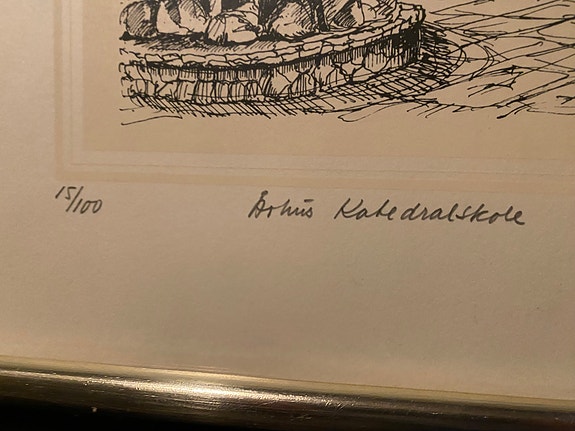 15/100 Århus Katedralskole